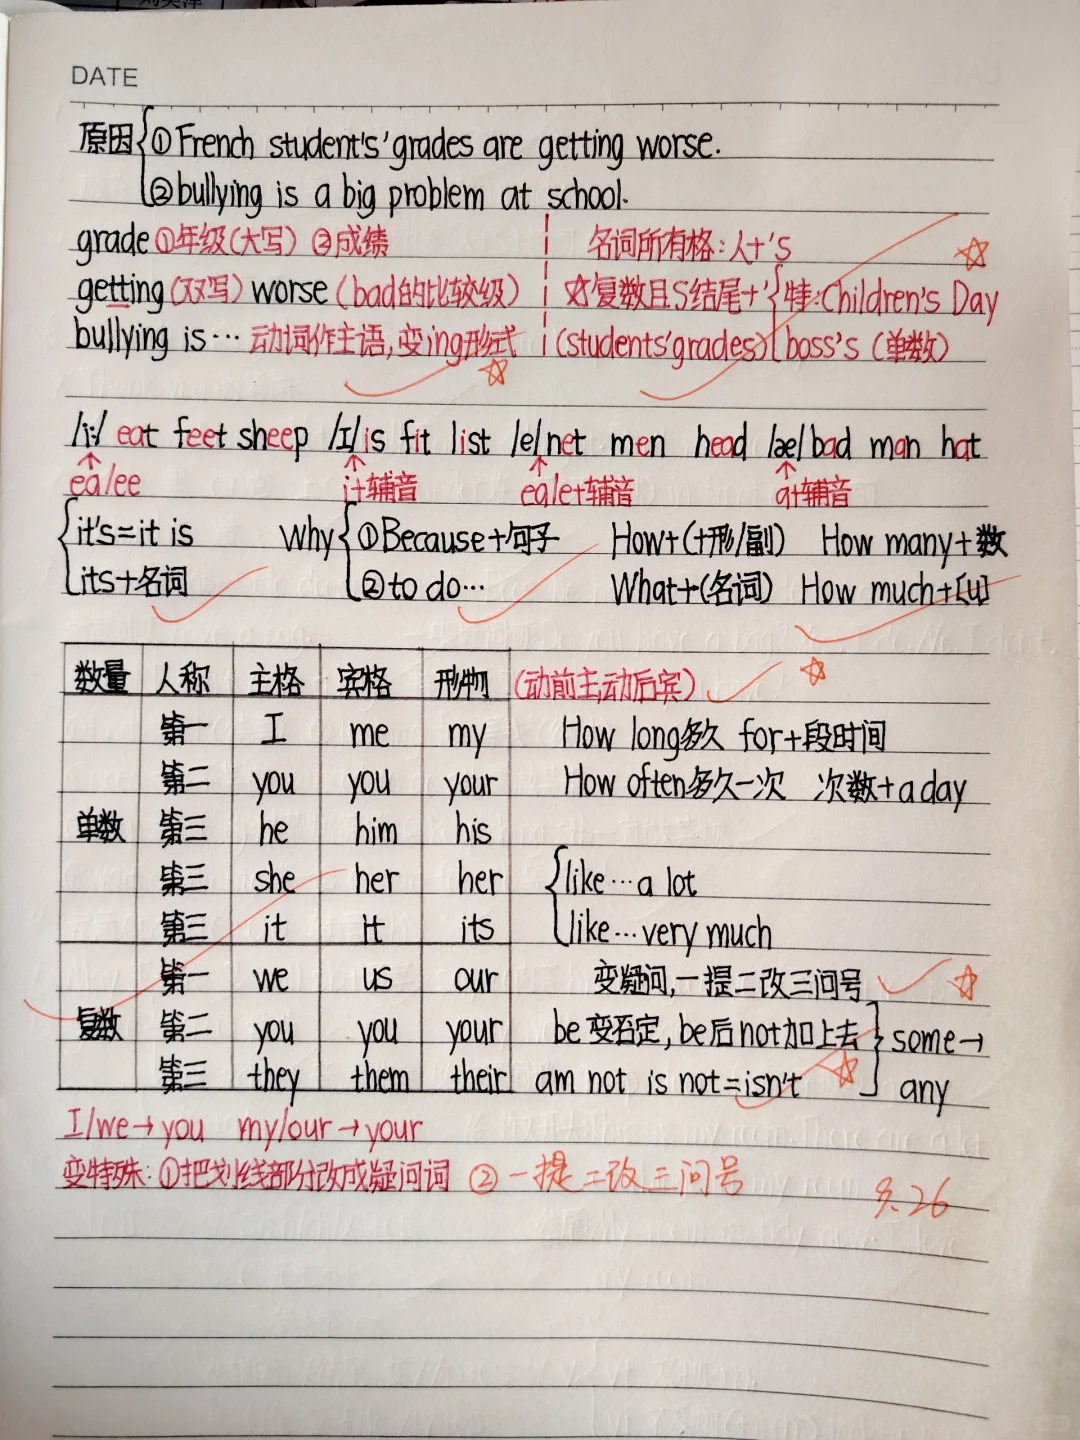 DATE
原因 ①French student's' grades are getting worse.
②bullying is a big problem at school.
grade ①年级(大写) ②成绩
getting(双写) worse (bad的比较级)
bullying is… 动词作主语,变ing形式
名词所有格:人+'s
☆复数且S结尾+' 特:Children's Day
(students'grades) boss's (单数)
/i:/ eat feet sheep /I/ is fit list /e/ net men head /æ/ bad man hat
ea/ee i+辅音 ea/e+辅音 a+辅音
it's=it is
its+名词
Why ①Because+句子
②to do…
How+(+形/副) How many+数
What+(名词) How much+[u]
数量 人称 主格 宾格 形物 (动前主,动后宾)
第一 I me my
第二 you you your
单数 第三 he him his
第三 she her her
第三 it it its
第一 we us our
复数 第二 you you your
第三 they them their
How long多久 for+段时间
How often多久一次 次数+a day
like…a lot
like…very much
变疑问,一提二改三问号
be变否定,be后not加上去 some→
am not is not=isn't any
I/we→you my/our→your
变特殊:①把划线部分改成疑问词 ②一提二改三问号
9.26